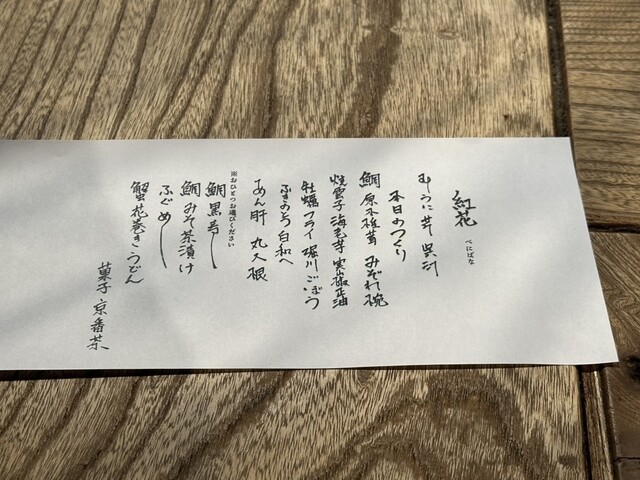 紅花
べにばな
本日のつくり
鯛 原木椎茸 みぞれ椀
焼雲子 海老芋 実山椒正油
牡蠣フライ 堀川ごぼう
ふきのとう白和へ
あん肝 丸大根
※おひとつお選びください
鯛黒寿し
鯛みそ茶漬け
ふぐめし
蟹花巻きうどん
菓子 京番茶